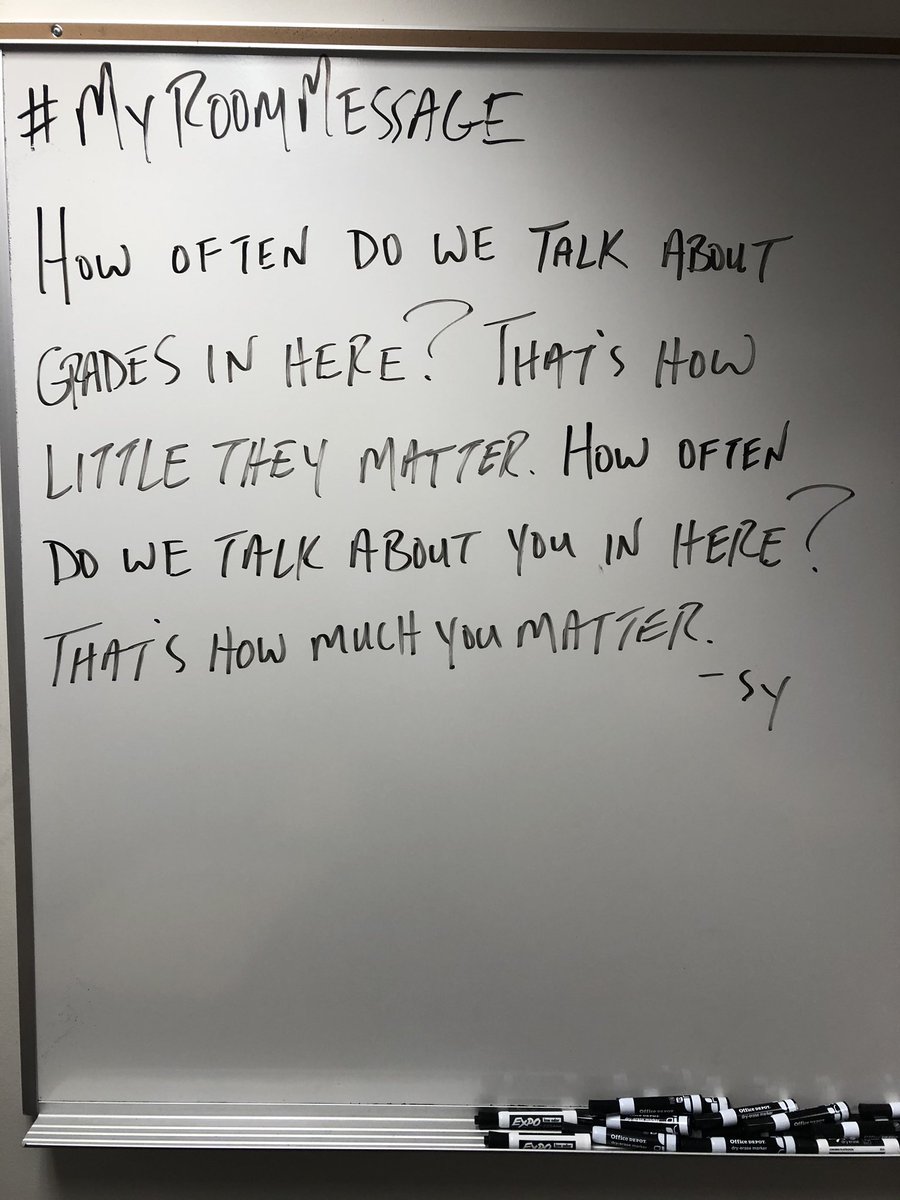 #MYROOMMESSAGE
HOW OFTEN DO WE TALK ABOUT
GRADES IN HERE? THAT'S HOW
LITTLE THEY MATTER. HOW OFTEN
DO WE TALK ABOUT YOU IN HERE?
THAT'S HOW MUCH YOU MATTER.
- SY
Office DEPOT
dry-erase marker
Office DEPOT
dry-erase marker
EXPO
Office DEPOT
dry-erase marker
Office DEPOT
dry-erase marker
EXPO